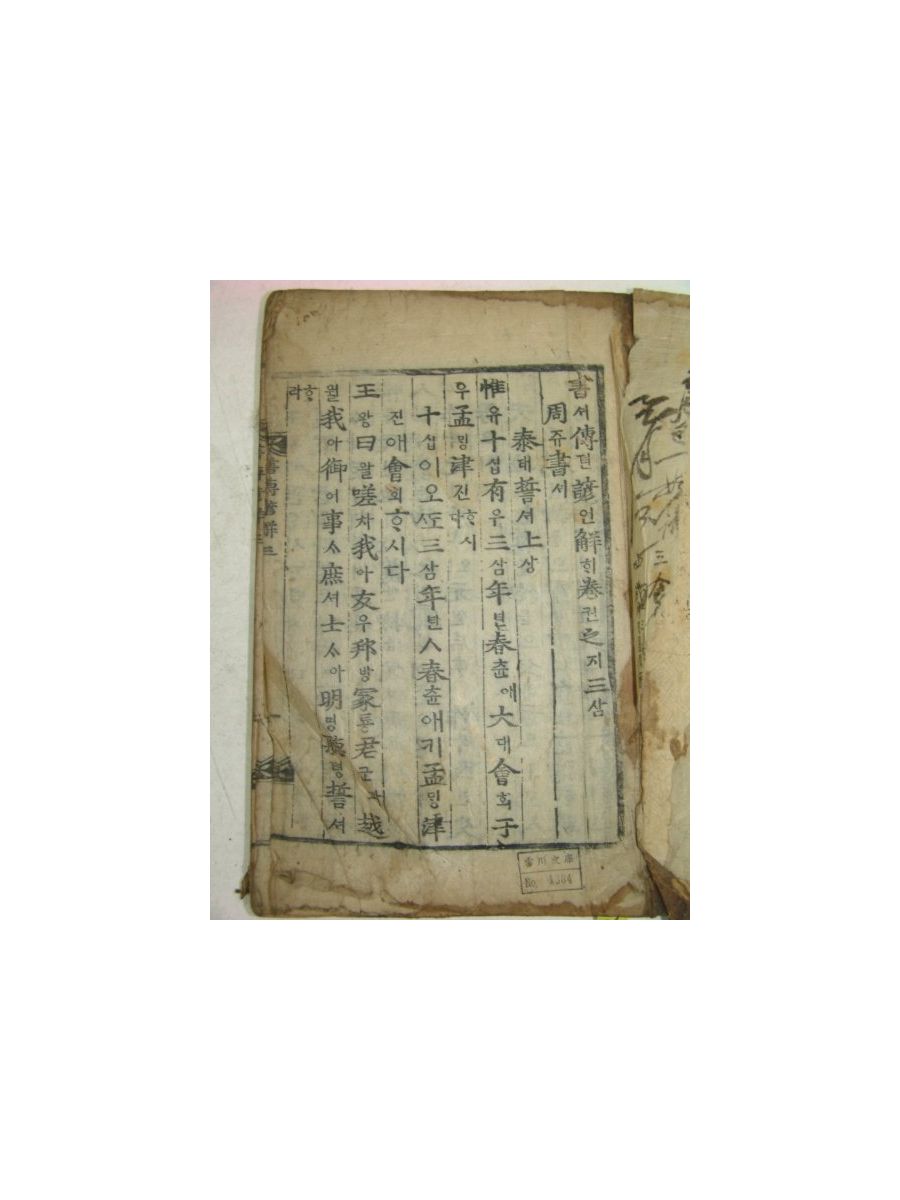 書셔傳뎐諺언解ᄒᆡ卷권之지三삼
周쥬書셔
泰태誓셔上샹
惟유十십有유三삼年년春츈애大대會회于
우孟ᄆᆡᆼ津진ᄒᆞ시다
十십이오ᄯᅩ三삼年년人春츈애기孟ᄆᆡᆼ津
진애會회ᄒᆞ시다
王왕曰왈嗟차我아友우邦방冢춍君군과越
월我아御어事ᄉᆞ庶셔士ᄉᆞ아明명聽텽誓셔
ᄒᆞ라
書傳諺解三
雪川文庫
No. 4384